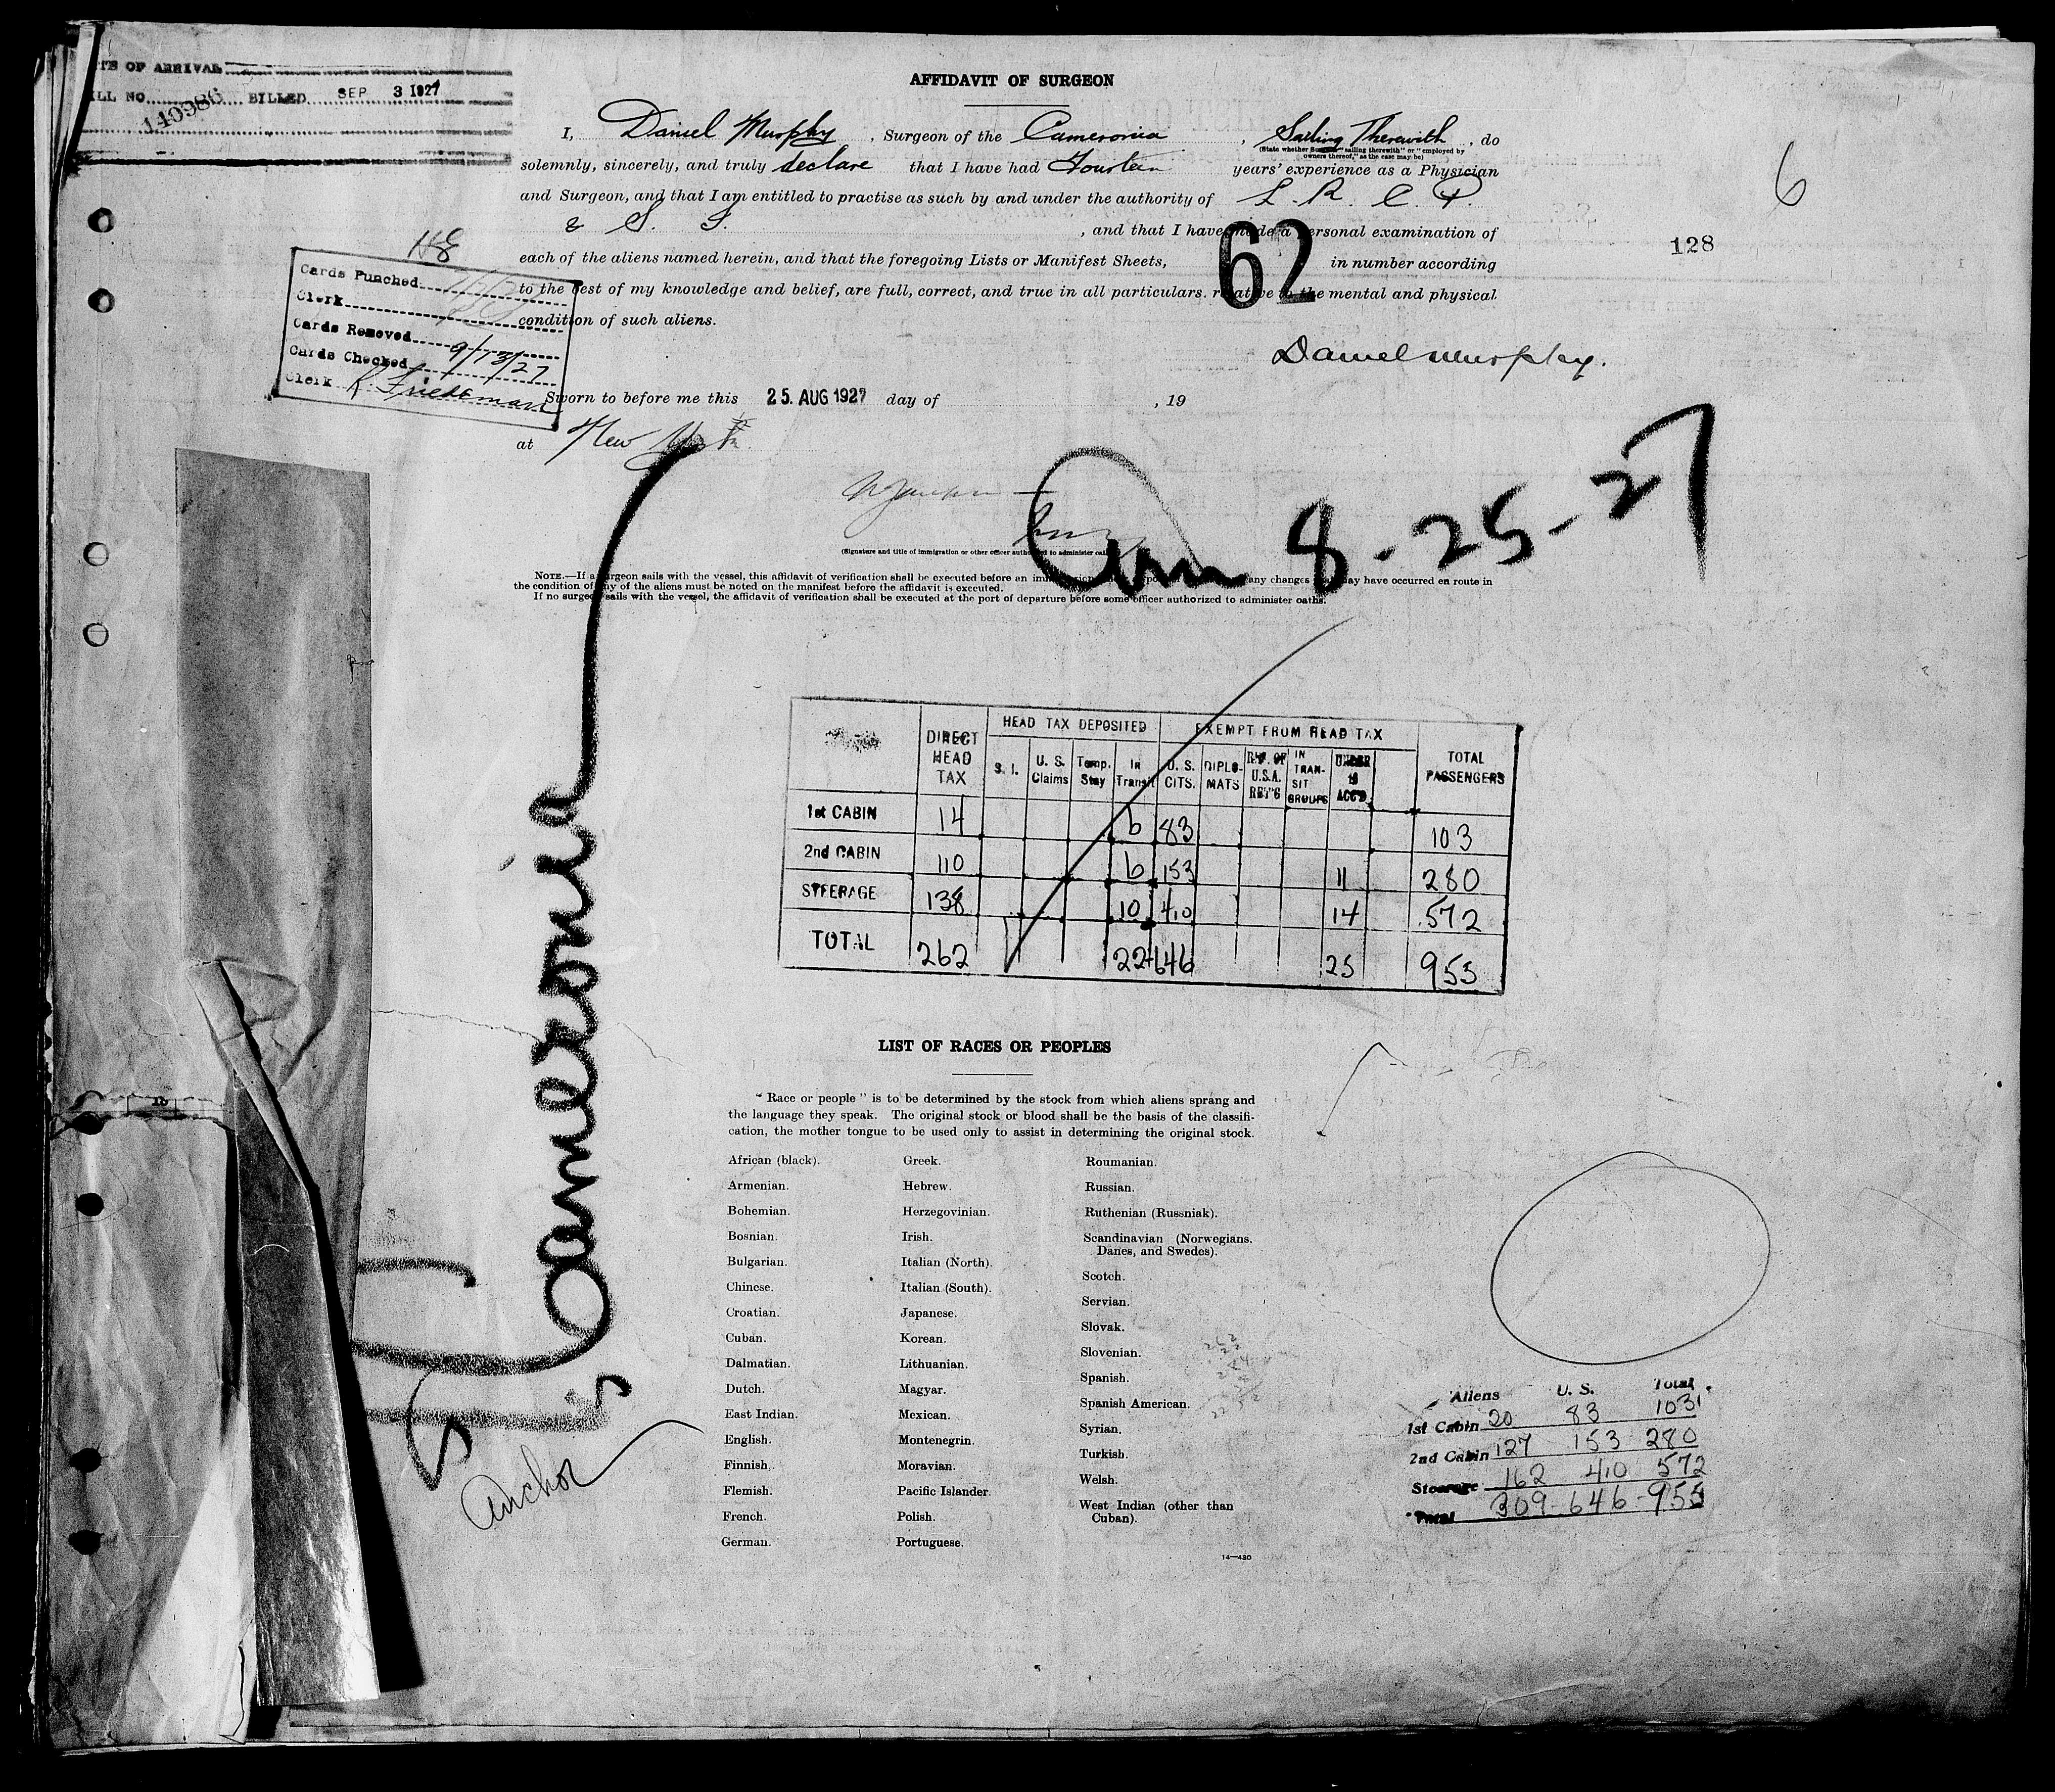 DATE OF ARRIVAL
BILL NO. 140986 BILLED SEP 3 1927
AFFIDAVIT OF SURGEON
I, Daniel Murphy, Surgeon of the Cameronia, Sailing Therewith, do
(State whether Surgeon "sailing therewith" or "employed by
owners thereof," as the case may be)
solemnly, sincerely, and truly declare that I have had Fourteen years' experience as a Physician
and Surgeon, and that I am entitled to practise as such by and under the authority of L. R. C. P.
& S. I. , and that I have made a personal examination of
each of the aliens named herein, and that the foregoing Lists or Manifest Sheets, 62 in number according
to the best of my knowledge and belief, are full, correct, and true in all particulars relative to the mental and physical
condition of such aliens.
6
128
Cards Punched
Clerk
Cards Removed
Cards Checked 9/13/27
Clerk R. Friedeman
Daniel Murphy.
Sworn to before me this 25. AUG 1927 day of , 19
at New York
(Signature and title of immigration or other officer authorized to administer oaths)
8-25-27
NOTE.—If a surgeon sails with the vessel, this affidavit of verification shall be executed before an any changes may have occurred en route in
the condition of any of the aliens must be noted on the manifest before the affidavit is executed.
If no surgeon sails with the vessel, the affidavit of verification shall be executed at the port of departure before some officer authorized to administer oaths.
DIRECT HEAD TAX HEAD TAX DEPOSITED EXEMPT FROM HEAD TAX TOTAL PASSENGERS
S. I. U. S. Claims Temp. Stay In Transit U. S. CITS. DIPLO-MATS RES. OF U.S.A. RET'G IN TRAN-SIT GROUPS UNDER 16 ACC'D
1st CABIN 14 6 83 103
2nd CABIN 110 6 153 11 280
STEERAGE 138 10 410 14 572
TOTAL 262 22 646 25 955
Cameronia
Anchor
LIST OF RACES OR PEOPLES
"Race or people" is to be determined by the stock from which aliens sprang and
the language they speak. The original stock or blood shall be the basis of the classifi-
cation, the mother tongue to be used only to assist in determining the original stock.
African (black).
Armenian.
Bohemian.
Bosnian.
Bulgarian.
Chinese.
Croatian.
Cuban.
Dalmatian.
Dutch.
East Indian.
English.
Finnish.
Flemish.
French.
German.
Greek.
Hebrew.
Herzegovinian.
Irish.
Italian (North).
Italian (South).
Japanese.
Korean.
Lithuanian.
Magyar.
Mexican.
Montenegrin.
Moravian.
Pacific Islander.
Polish.
Portuguese.
Roumanian.
Russian.
Ruthenian (Russniak).
Scandinavian (Norwegians,
Danes, and Swedes).
Scotch.
Servian.
Slovak.
Slovenian.
Spanish.
Spanish American.
Syrian.
Turkish.
Welsh.
West Indian (other than
Cuban).
14—430
Aliens U. S. Total
1st Cabin 20 83 103
2nd Cabin 127 153 280
Steerage 162 410 572
Total 309-646-955